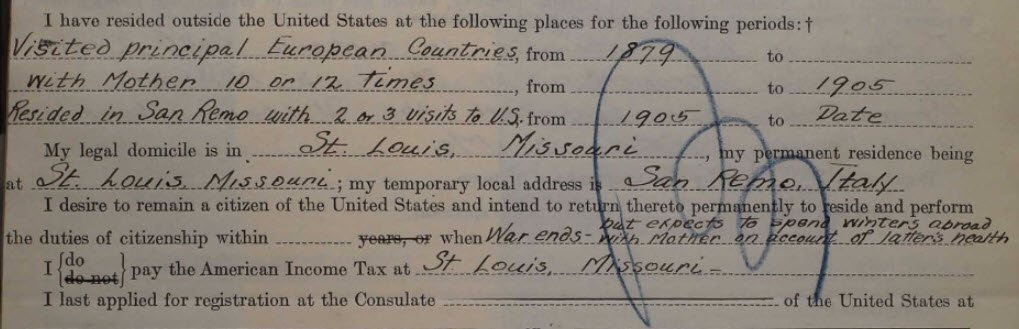 I have resided outside the United States at the following places for the following periods:†
Visited principal European Countries, from 1879 to
With Mother 10 or 12 Times, from to 1905
Resided in San Remo with 2 or 3 visits to U.S. from 1905 to Date
My legal domicile is in St. Louis, Missouri, my permanent residence being
at St. Louis, Missouri; my temporary local address is San Remo, Italy
I desire to remain a citizen of the United States and intend to return thereto permanently to reside and perform
but expects to spend winters abroad
the duties of citizenship within years, or when War ends- with Mother on account of latter's health
I {do do not} pay the American Income Tax at St Louis, Missouri -
I last applied for registration at the Consulate of the United States at